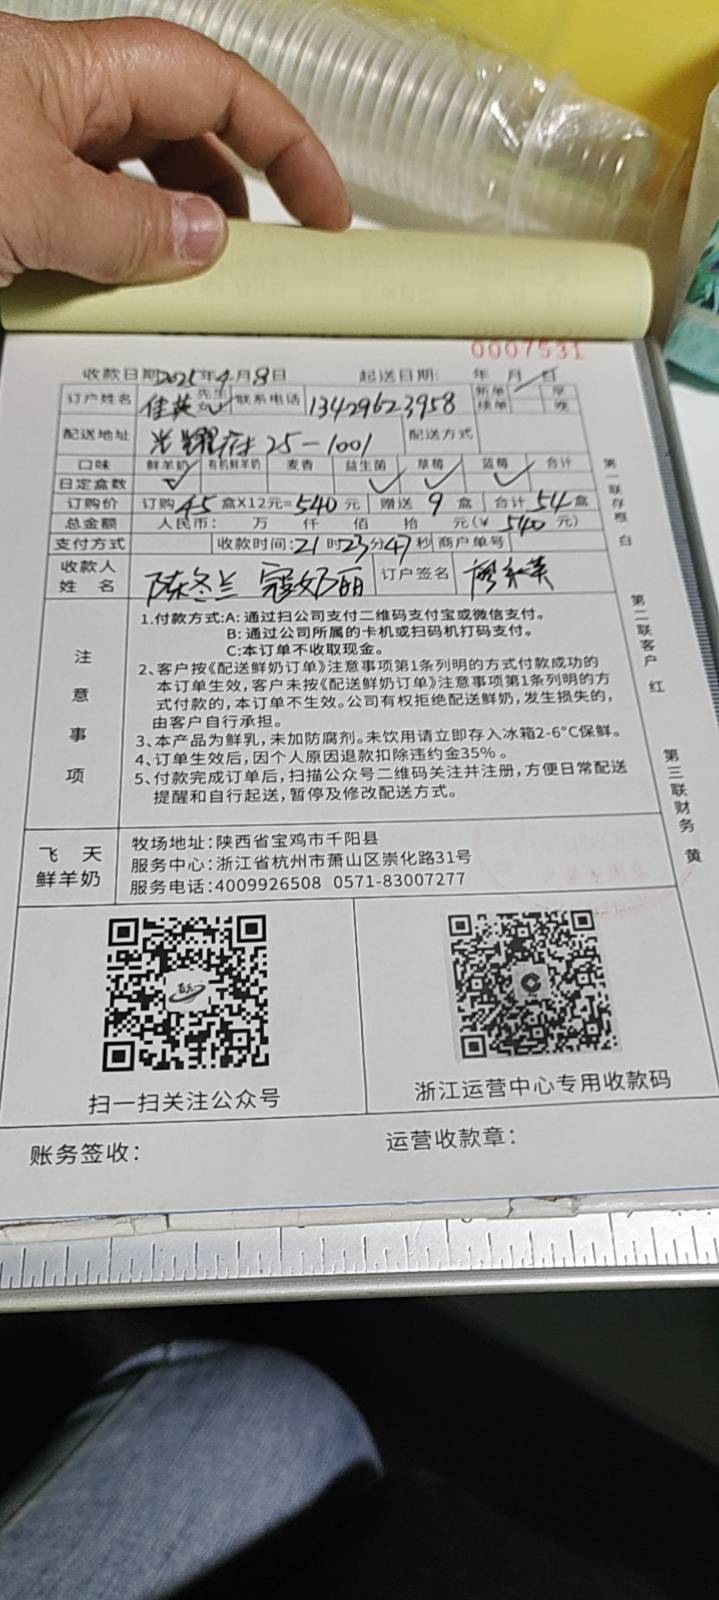 0007531
收款日期2025年4月8日 起送日期: 年 月 日
订户姓名 佳英 先生 女士 联系电话 13429623958 新单 续单 早 晚
配送地址 光耀府 25-1001 配送方式
口味 鲜羊奶 有机鲜羊奶 麦香 益生菌 草莓 蓝莓 合计
日定盒数 ✓ ✓ ✓ ✓
订购价 订购 45 盒X12元=540 元 赠送 9 盒 合计 54 盒
总金额 人民币: 万 仟 佰 拾 元(¥ 540 元)
支付方式 收款时间:21时23分47秒 商户单号
收款人姓名 陈冬兰 寇 丽 订户签名 廖 英
注意事项
1.付款方式:A: 通过扫公司支付二维码支付宝或微信支付。
B: 通过公司所属的卡机或扫码机打码支付。
C:本订单不收取现金。
2、客户按《配送鲜奶订单》注意事项第1条列明的方式付款成功的
本订单生效,客户未按《配送鲜奶订单》注意事项第1条列明的方
式付款的,本订单不生效。公司有权拒绝配送鲜奶,发生损失的,
由客户自行承担。
3、本产品为鲜乳,未加防腐剂。未饮用请立即存入冰箱2-6°C保鲜。
4、订单生效后,因个人原因退款扣除违约金35% 。
5、付款完成订单后,扫描公众号二维码关注并注册,方便日常配送
提醒和自行起送,暂停及修改配送方式。
第一联存根 白
第二联客户 红
第三联财务 黄
飞天
鲜羊奶
牧场地址:陕西省宝鸡市千阳县
服务中心:浙江省杭州市萧山区崇化路31号
服务电话:4009926508 0571-83007277
扫一扫关注公众号
浙江运营中心专用收款码
账务签收:
运营收款章: